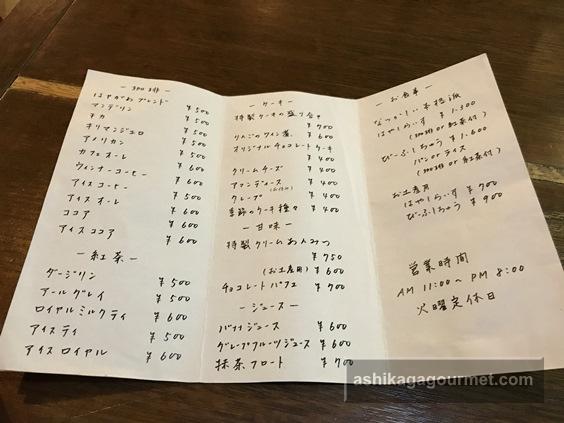 ー 珈琲 ー
はやかわブレンド ¥500
マンデリン ¥500
モカ ¥500
キリマンジェロ ¥500
アメリカン ¥500
カフェオーレ ¥600
ウィンナーコーヒー ¥600
アイスコーヒー ¥500
アイスオーレ ¥600
ココア ¥600
アイスココア ¥600
ー 紅茶 ー
ダージリン ¥500
アールグレイ ¥500
ロイヤルミルクティ ¥600
アイスティ ¥500
アイスロイヤル ¥600
ー ケーキ ー
特製ケーキの盛り合せ ¥700
りんごのワイン煮 ¥600
オリジナルチョコレートケーキ ¥400
クリームチーズ ¥400
¥400
クレープ ¥400
季節のケーキ種々 ¥400
ー 甘味 ー
特製クリームあんみつ ¥750
(お土産用) ¥600
チョコレートパフェ ¥700
ー ジュース ー
バナナジュース ¥600
グレープフルーツジュース ¥600
抹茶フロート ¥700
ー お食事 ー
なつかしい本格派
はやしらいす ¥1.300
(珈琲 or 紅茶付)
びーふしちゅう ¥1.600
パン or ライス
(珈琲 or 紅茶付)
お土産用
はやしらいす ¥700
びーふしちゅう ¥900
営業時間
AM 11:00 〜 PM 8:00
火曜定休日
ashikagagourmet.com